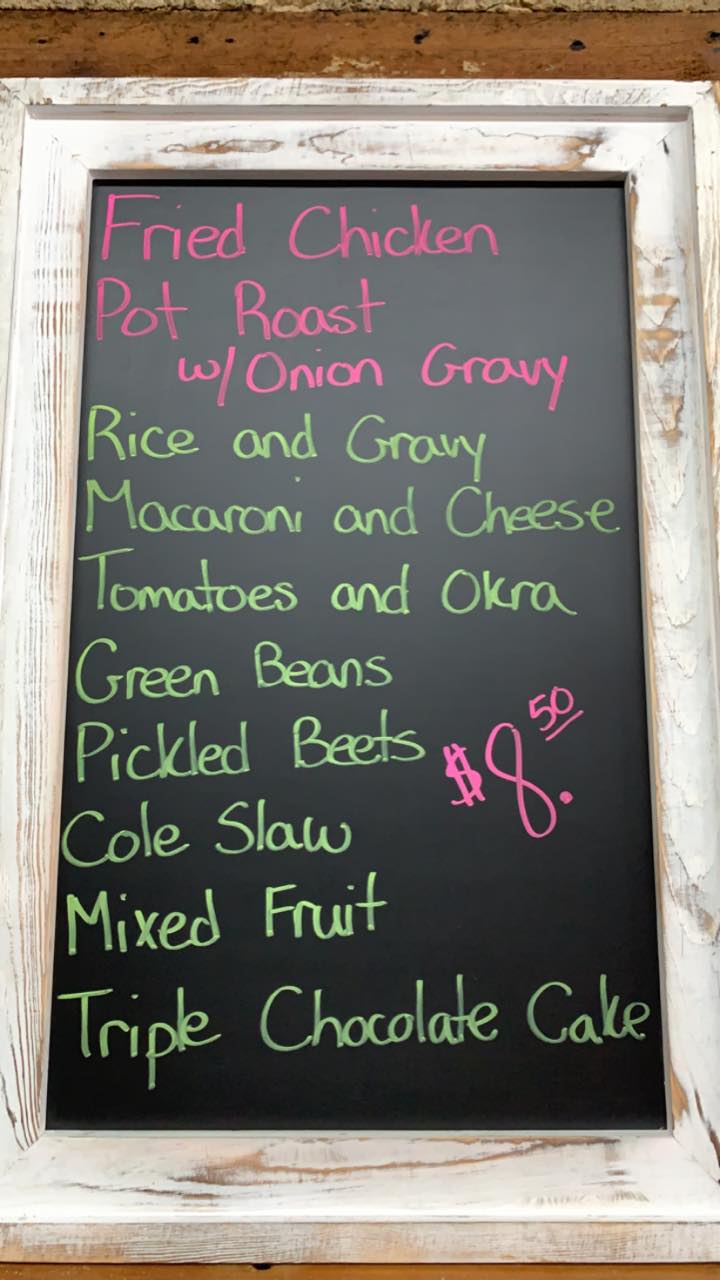 Fried Chicken
Pot Roast
w/ Onion Gravy
Rice and Gravy
Macaroni and Cheese
Tomatoes and Okra
Green Beans
Pickled Beets
$8.50
Cole Slaw
Mixed Fruit
Triple Chocolate Cake